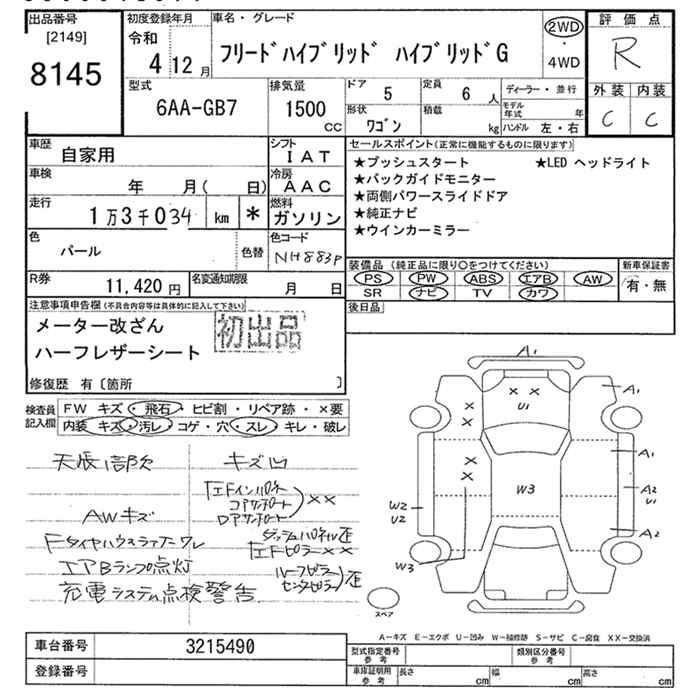 出品番号
[2149]
8145
初度登録年月
令和
4 12 月
車名・グレード
フリードハイブリッド ハイブリッドG
2WD
・
4WD
評価点
R
型式
6AA-GB7
排気量
1500
CC
ドア
5
定員
6 人
ディーラー・並行
形状
ワゴン
積載
kg
モデル年式 年
ハンドル 左・右
外装 内装
C C
車歴
自家用
シフト
IAT
車検
年 月( 日)
冷房
AAC
走行
1万3千034 km *
燃料
ガソリン
色
パール
色替
色コード
NH883P
R券
11,420 円
名変通知期限
月 日
セールスポイント(正常に機能するものに限ります)
★プッシュスタート ★LED ヘッドライト
★バックガイドモニター
★両側パワースライドドア
★純正ナビ
★ウインカーミラー
装備品 (純正品に限り〇をつけてください)
PS PW ABS エアB AW
SR ナビ TV カワ
新車保証書
有・無
後日品
注意事項申告欄(不具合内容等は具体的に記入して下さい)
メーター改ざん
ハーフレザーシート
初出品
修復歴 有〔箇所 〕
検査員
記入欄
FW キズ・飛石・ヒビ割・リペア跡・×要
内装 キズ・汚レ・コゲ・穴・スレ・キレ・破レ
キズ凹
AWキズ
エアBランプ点灯
充電システム点検警告
A1
U1
A1
A1
A2
U1
A2
W3
W2
U2
W3
スペア
A-キズ E-エクボ U-凹み W-補修跡 S-サビ C-腐食 XX-交換済
車台番号
3215490
登録番号
型式指定番号
参考
類別区分番号
参考
車庫証明用
参考
長さ cm 幅 cm 高さ cm